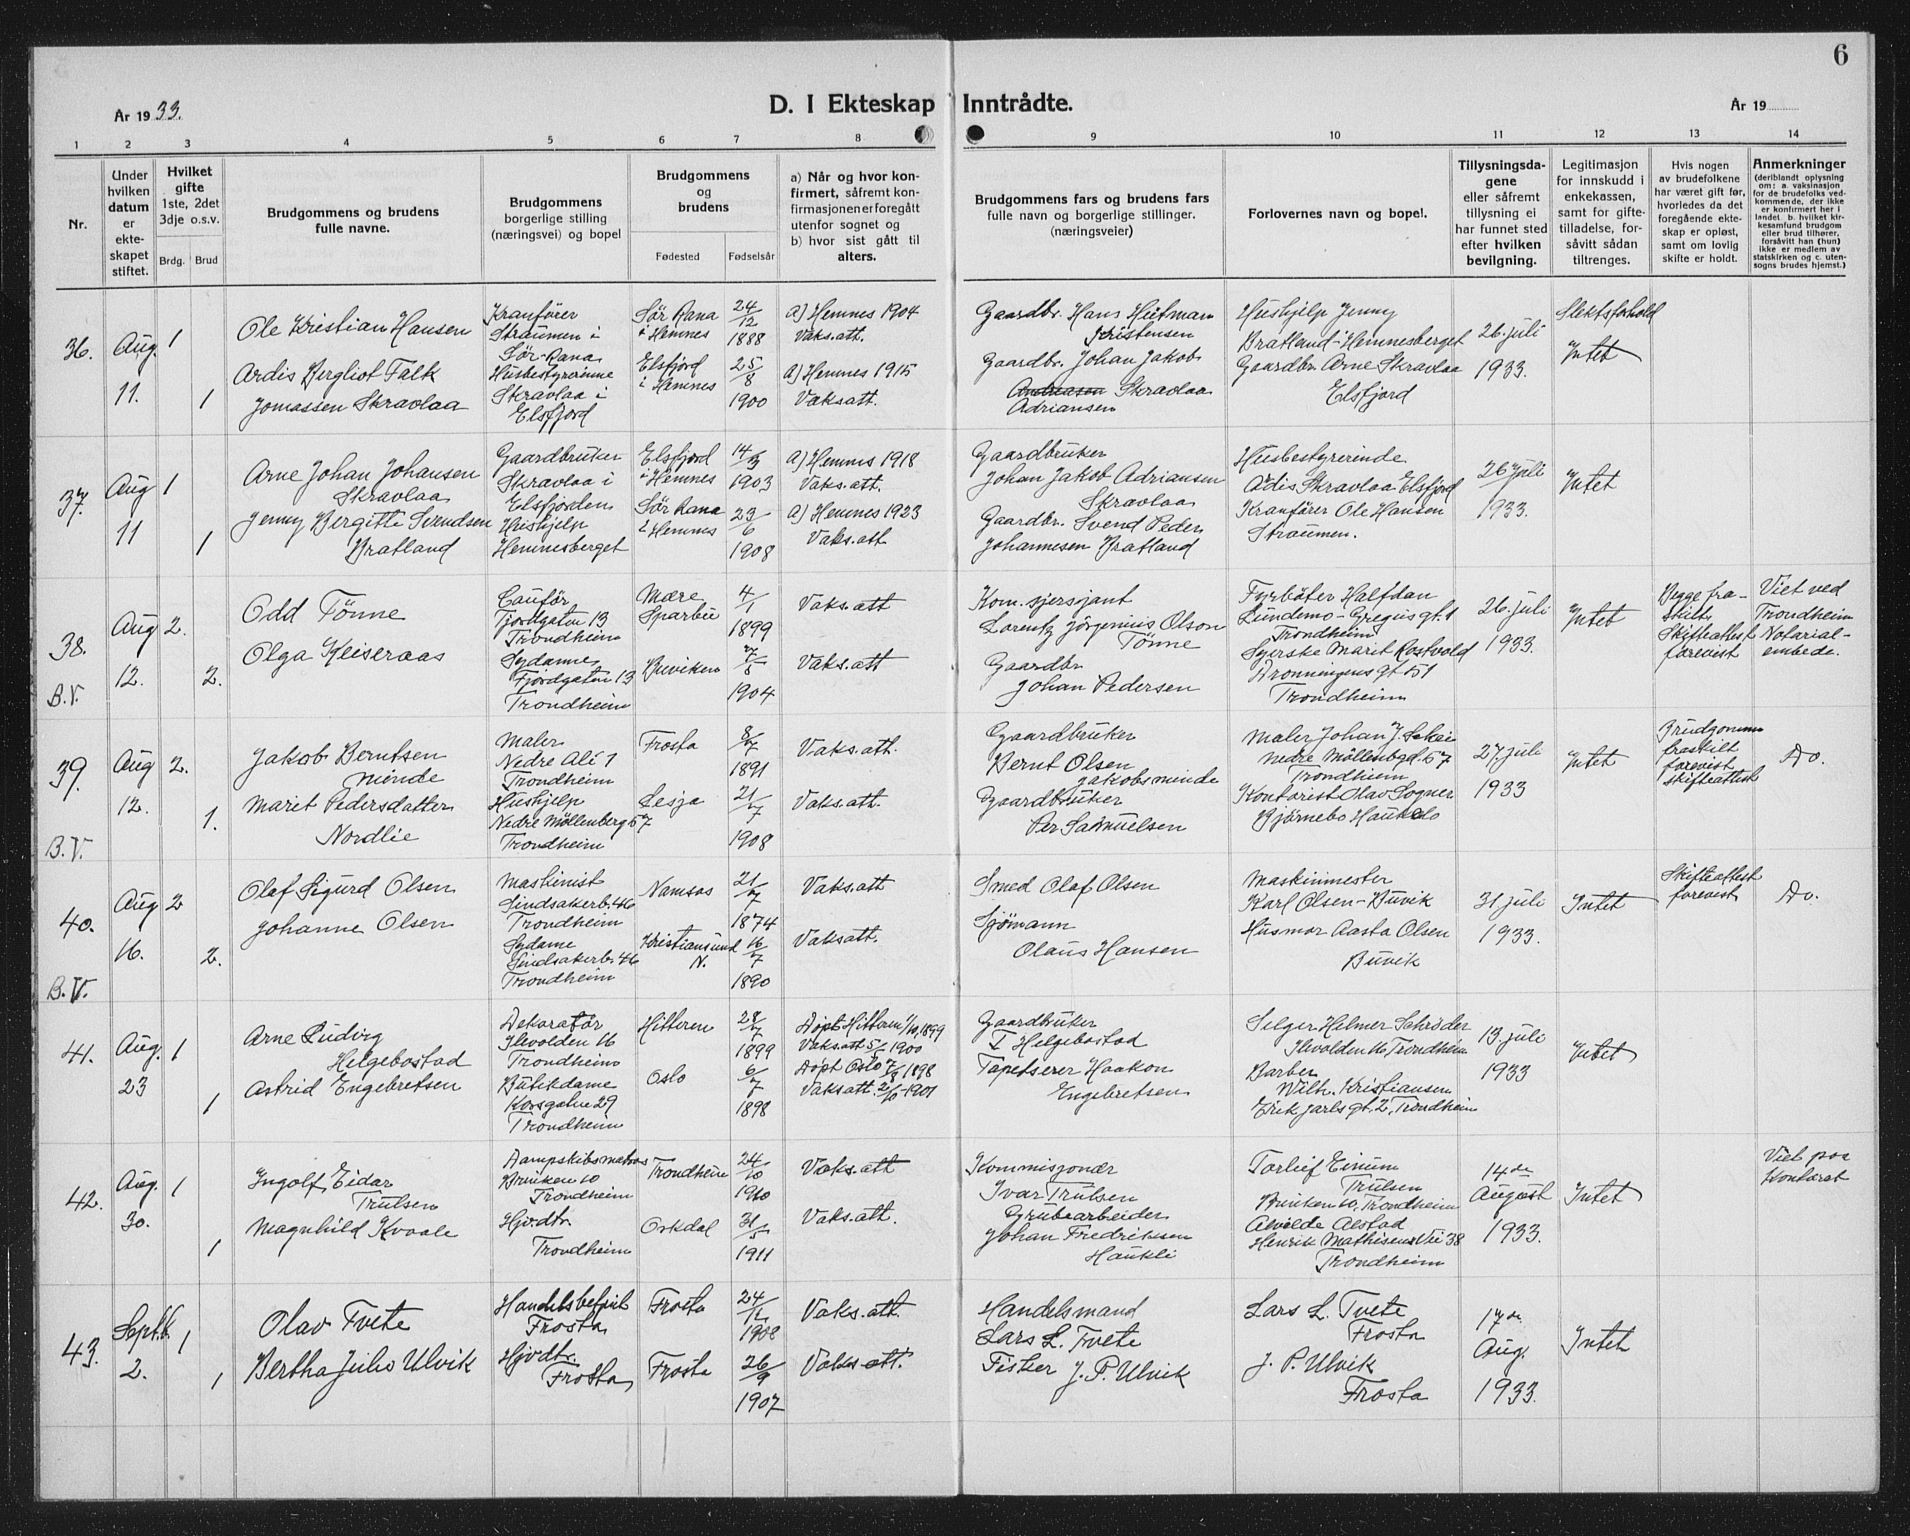 6
År 1933.
D. I Ekteskap Inntrådte.
År 19
1 2 3 4 5 6 7 8 9 10 11 12 13 14
Nr.
Under hvilken datum er ekteskapet stiftet.
Hvilket gifte 1ste, 2det 3dje o.s.v.
Brdg. Brud
Brudgommens og brudens fulle navne.
Brudgommens borgerlige stilling (næringsvei) og bopel
Brudgommens og brudens
Fødested Fødselsår
a) Når og hvor konfirmert, såfremt konfirmasjonen er foregått utenfor sognet og
b) hvor sist gått til alters.
Brudgommens fars og brudens fars fulle navn og borgerlige stillinger. (næringsveier)
Forlovernes navn og bopel.
Tillysningsdagene eller såfremt tillysning ei har funnet sted efter hvilken bevilgning.
Legitimasjon for innskudd i enkekassen, samt for giftetilladelse, forsåvitt sådan tiltrenges.
Hvis nogen av brudefolkene har været gift før, hvorledes da det foregående ekteskap er opløst, samt om lovlig skifte er holdt.
Anmerkninger
(deriblandt oplysning om: a. vaksinasjon for de brudefolks vedkommende, der ikke er konfirmert her i landet b. hvilket kirkesamfund brudgom eller brud tilhører, forsåvitt han (hun) ikke er medlem av statskirken og c. utensogns brudes hjemst.)
36.
Aug. 11.
1
1
Ole Kristian Hansen
Ardis Bergliot Falk
Jomassen Skravlaa
Kranfører
Straumen i
Sør-Rana
Husbestyrerinne
Skravlaa i
Elsfjord
Sør Rana
i Hemnes
Elsfjord
i Hemnes
24/12
1888
25/8
1900
a) Hemnes 1904
Vaks.att.
a) Hemnes 1915
Vaks att.
Gaardbr. Hans Heitman
Kristensen
Gaardbr. Johan Jakob
Skravlaa
Adriansen
Hushjelp Jenny
Bratland-Hemnesberget
Gaardbr. Arne Skravlaa
Elsfjord
26. juli
1933.
Slektsforhold
Intet
37.
Aug 11
1
1
Arne Johan Johansen
Skravlaa
Jenny Bergitte Svendsen
Bratland
Gaardbruker
Skravlaa i
Elsfjorden
Hushjelp
Hemnesberget
Elsfjord
i Hemnes
Sør Rana
i Hemnes
14/3
1903
23/6
1908
a) Hemnes 1918
Vaks.att.
a) Hemnes 1923
Vaks.att
Gaardbruker
Johan Jakob Adriansen
Skravlaa
Gaardbr. Svend Peder
Johannesen Bratland
Husbestyrerinde
Ardis Skravlaa Elsfjord
Kranfører Ole Hansen
Straumen.
26 juli
1933.
Intet
38.
B.V.
Aug 12.
2.
2.
Odd Tönne
Olga Keiseraas
Fjordgaten 13
Trondheim
Sydame
Fjordgaten 13
Trondheim
Mære
Sparbu
Buviken
4/1
1899
7/5
1904
Vaks.att
Vaks.att
Kom. sjersjant
Lorentz Jörgenius Olson
Tönne
Gaardbr
Johan Pedersen
Fyrböter Halfdan
Lundemo-Gregus gt. 1
Trondheim
Syerske Marit Rostvold
Dronningens gt 51
Trondheim
26. juli
1933.
Intet
Begge fraskilt
Skifteattest
forevist
Viet ved
Trondheim
Notarialembede.
39.
B.V.
Aug 12.
2.
1.
Jakob Berntsen
minde
Marit Pedersdatter
Nordlie
Maler
Nedre Ali 1
Trondheim
Hushjelp
Nedre Möllenberg 57
Trondheim
Frosta
Lesja
8/7
1891
21/7
1908
Vaks.att.
Vaks.att.
Gaardbruker
Bernt Olsen
Jakobsminde
Gaardbruker
Per Samuelsen
Maler Johan J.
Nedre Möllenbgd. 57
Trondheim
Kontorist Olav Sogner
Bjørnebo Haukedo
27. juli
1933
Intet
Brudgommen
fraskilt
forevist
skifteattest
Do.
40.
B.V.
Aug 16.
2
2.
Olaf Sigurd Olsen
Johanne Olsen
Maskinist
Lindsakerb. 46
Trondheim
Sydame
Lindsakerb. 46
Trondheim
Namsos
Kristiansund
N.
21/7
1874
16/7
1890
Vaks.att
Vaks att.
Smed Olaf Olsen
Sjömann
Olaus Hansen
Maskinmester
Karl Olsen-Buvik
Husmor Aasta Olsen
Buvik
31 juli
1933.
Intet
Skifteattest
forevist
Do.
41.
Aug. 23
1
1
Arne Ludvig
Helgebostad
Astrid Engebretsen
Dekoratør
Ilevolden 16
Trondheim
Butikdame
Korsgaten 29
Trondheim
Hitteren
Oslo
28/7
1899
6/7
1898
Døpt Hitteren 1/10 1899
Vaks att 5/ 1900
Døpt Oslo 7/8 1898
Vaks att. 2/10-1901
Gaardbruker
I Helgebostad
Tapetserer Haakon
Engebretsen
Selger Helmer Schröder
Ilevolden 16, Trondheim
Barber
Wilh. Kristiansen
Erik jarls gt. 2, Trondheim
13. juli
1933
Intet
42.
Aug. 30.
1
1
Ingolf Eidar
Trulsen
Magnhild Kvaale
Dampskibsmatros
Bruken 10
Trondheim
Hjvdtr.
Trondheim
Trondheim
Orkdal
24/10
1910
31/5
1911
Vaks.att
Vaks.att.
Kommisjonær
Ivar Trulsen
Grubearbeider
Johan Fredriksen
Haukli
Torleif Einum
Trulsen
Bruken 10, Trondheim
Alvilde Alstad
Henrik Mathisens Vei 38
Trondheim
14de
August
1933.
Intet
Viet paa
Kontoret
43.
Septb. 2.
1
1
Olav Tvete
Bertha Julie Ulvik
Handelsbetjent
Frosta
Hjvdtr.
Frosta
Frosta
Frosta
24/12
1908
26/9
1907
Vaks.att.
Vaks.att.
Handelsmand
Lars L. Tvete
Fisker J. P. Ulvik
Lars L. Tvete
Frosta
J. P. Ulvik
Frosta
17de
Aug.
1933.
Intet